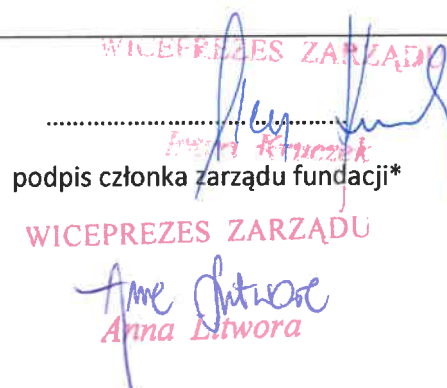 WICEPREZES ZARZĄDU
................................................
Kruczek
podpis członka zarządu fundacji*
WICEPREZES ZARZĄDU
Anna Litwora